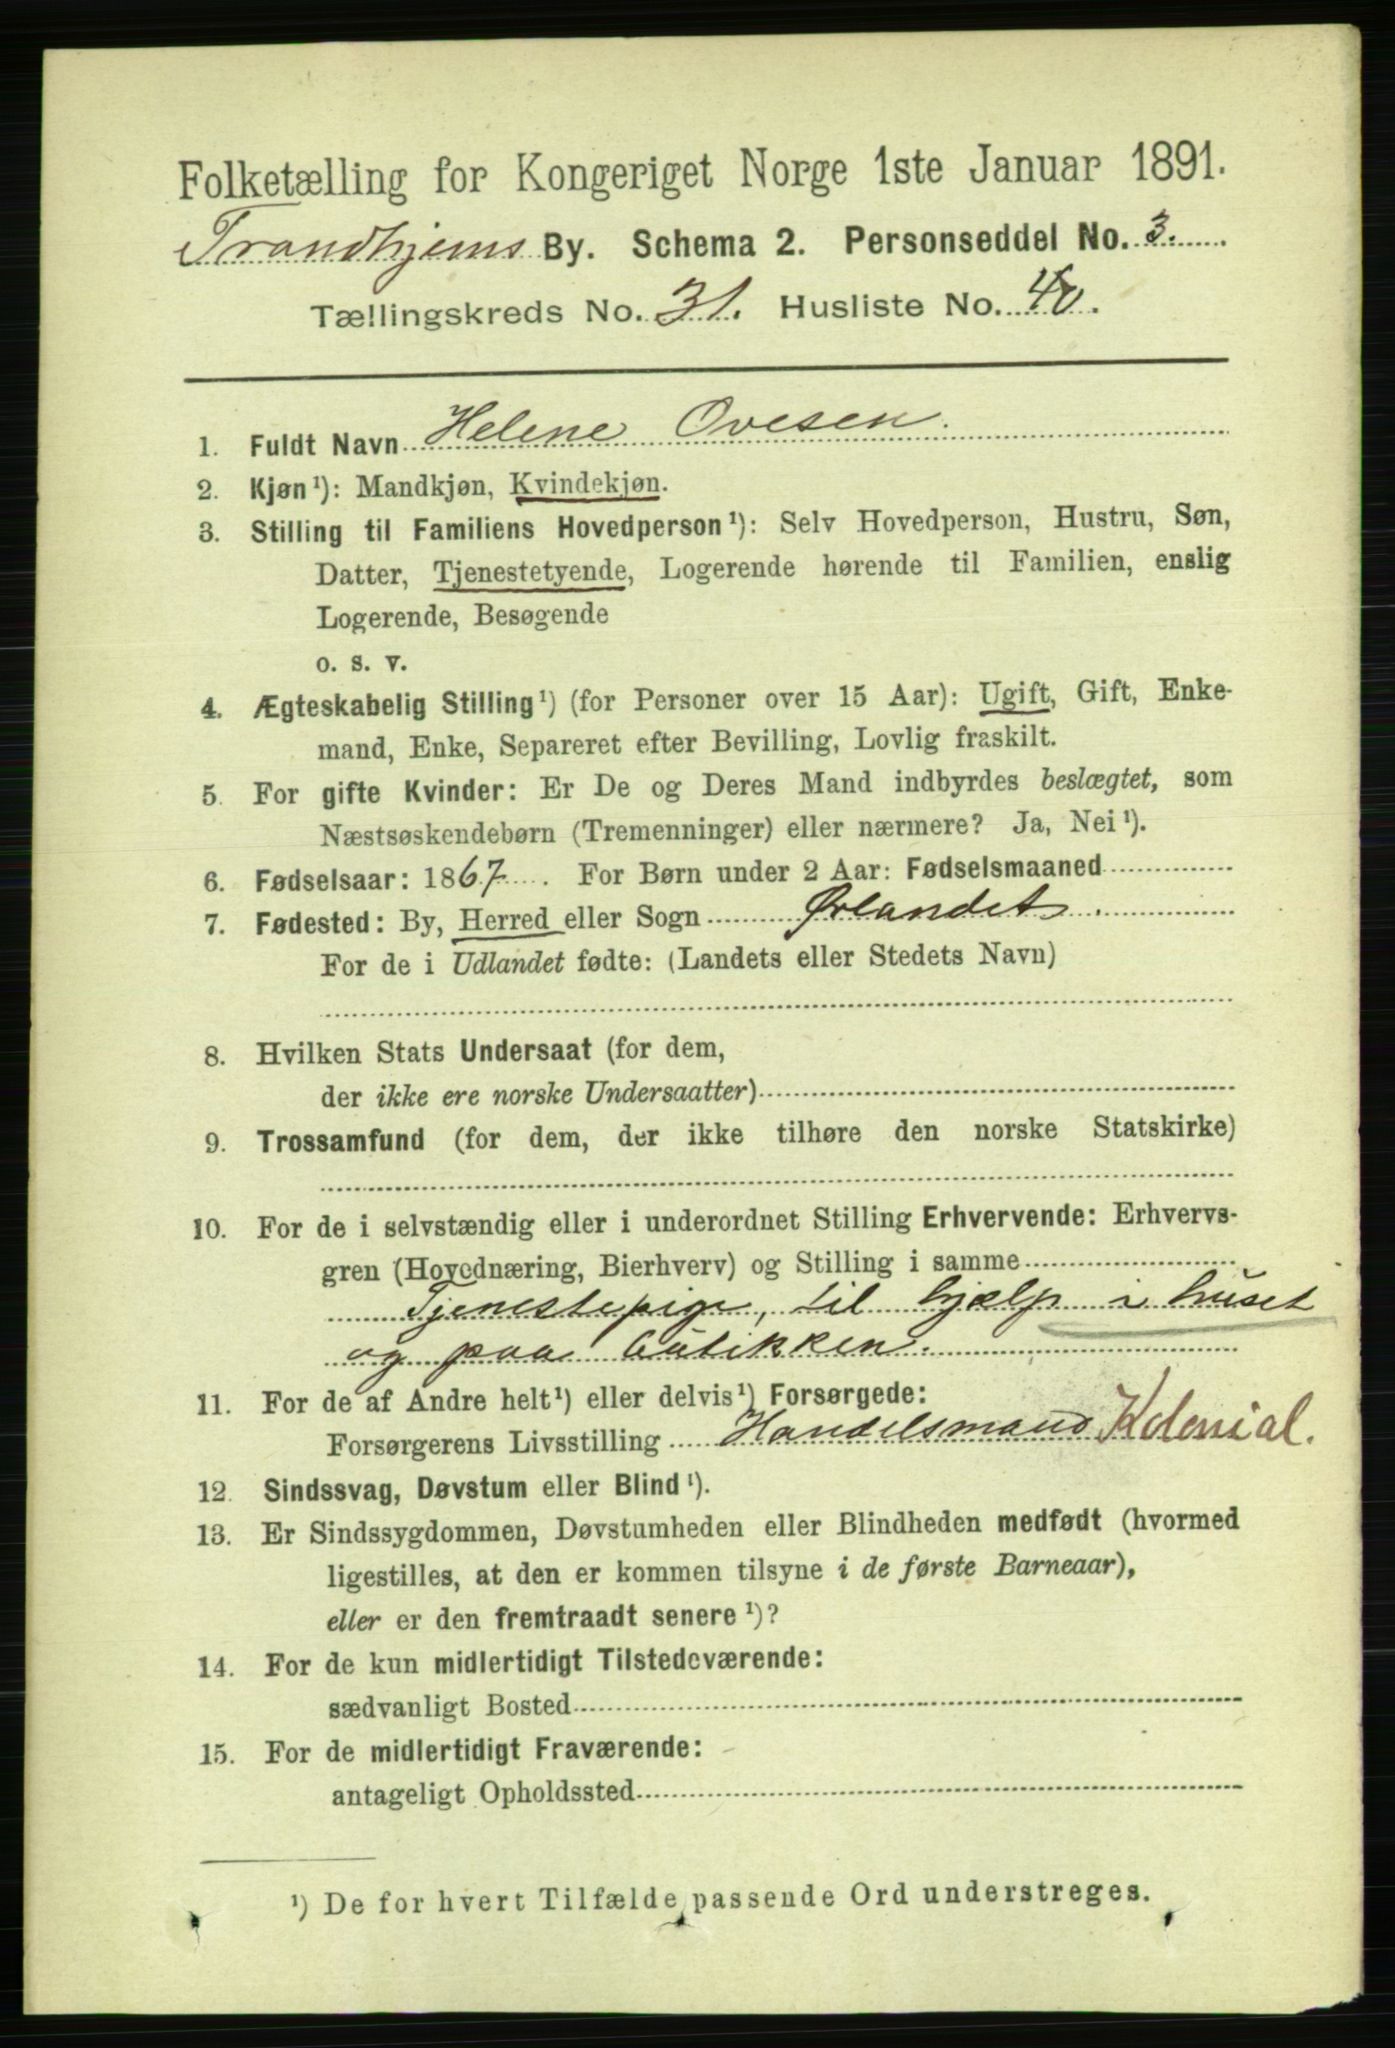 Folketælling for Kongeriget Norge 1ste Januar 1891.
Trondhjems By. Schema 2. Personseddel No. 3.
Tællingskreds No. 31. Husliste No. 40.
1. Fuldt Navn Helene Ovesen.
2. Kjøn¹): Mandkjøn, Kvindekjøn.
3. Stilling til Familiens Hovedperson¹): Selv Hovedperson, Hustru, Søn,
Datter, Tjenestetyende, Logerende hørende til Familien, enslig
Logerende, Besøgende
o. s. v.
4. Ægteskabelig Stilling¹) (for Personer over 15 Aar): Ugift, Gift, Enke-
mand, Enke, Separeret efter Bevilling, Lovlig fraskilt.
5. For gifte Kvinder: Er De og Deres Mand indbyrdes beslægtet, som
Næstsøskendebørn (Tremenninger) eller nærmere? Ja, Nei¹).
6. Fødselsaar: 1867. For Børn under 2 Aar: Fødselsmaaned
7. Fødested: By, Herred eller Sogn Ørlandet.
For de i Udlandet fødte: (Landets eller Stedets Navn)
8. Hvilken Stats Undersaat (for dem,
der ikke ere norske Undersaatter)
9. Trossamfund (for dem, der ikke tilhøre den norske Statskirke)
10. For de i selvstændig eller i underordnet Stilling Erhvervende: Erhvervs-
gren (Hovednæring, Bierhverv) og Stilling i samme
Tjenestepige, til hjælp i huset
og paa butikken.
11. For de af Andre helt¹) eller delvis¹) Forsørgede:
Forsørgerens Livsstilling Handelsmand Kolonial.
12. Sindssvag, Døvstum eller Blind¹).
13. Er Sindssygdommen, Døvstumheden eller Blindheden medfødt (hvormed
ligestilles, at den er kommen tilsyne i de første Barneaar),
eller er den fremtraadt senere¹)?
14. For de kun midlertidigt Tilstedeværende:
sædvanligt Bosted
15. For de midlertidigt Fraværende:
antageligt Opholdssted
¹) De for hvert Tilfælde passende Ord understreges.